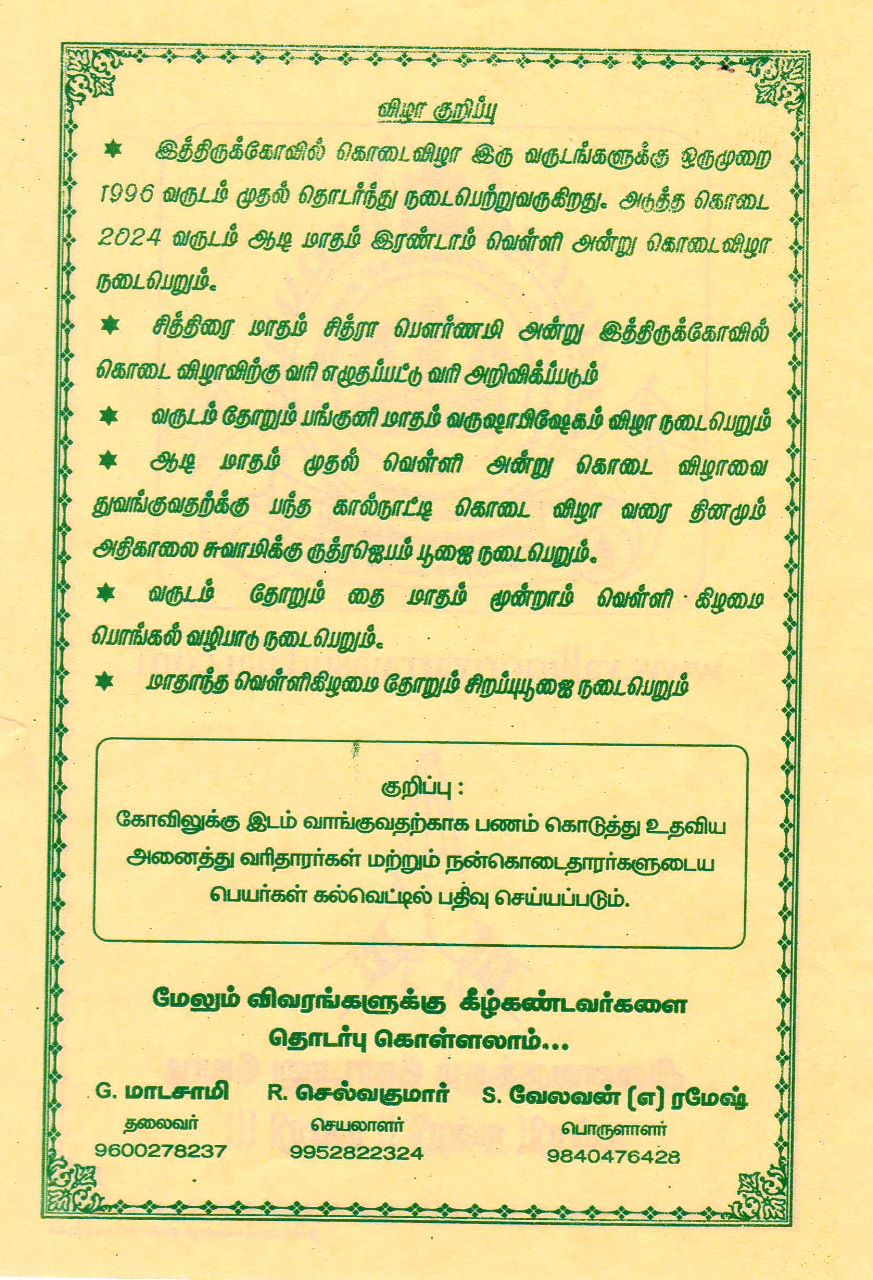 விழா குறிப்பு
✶ இத்திருக்கோவில் கொடைவிழா இரு வருடங்களுக்கு ஒருமுறை
1996 வருடம் முதல் தொடர்ந்து நடைபெற்றுவருகிறது. அடுத்த கொடை
2024 வருடம் ஆடி மாதம் இரண்டாம் வெள்ளி அன்று கொடைவிழா
நடைபெறும்.
✶ சித்திரை மாதம் சித்ரா பௌர்ணமி அன்று இத்திருக்கோவில்
கொடை விழாவிற்கு வரி எழுதப்பட்டு வரி அறிவிக்ப்படும்
✶ வருடம் தோறும் பங்குனி மாதம் வருஷாபிஷேகம் விழா நடைபெறும்
✶ ஆடி மாதம் முதல் வெள்ளி அன்று கொடை விழாவை
துவங்குவதற்க்கு பந்த கால்நாட்டி கொடை விழா வரை தினமும்
அதிகாலை சுவாமிக்கு ருத்ரஜெபம் பூஜை நடைபெறும்.
✶ வருடம் தோறும் தை மாதம் மூன்றாம் வெள்ளி கிழமை
பொங்கல் வழிபாடு நடைபெறும்.
✶ மாதாந்த வெள்ளிகிழமை தோறும் சிறப்புபூஜை நடைபெறும்
குறிப்பு :
கோவிலுக்கு இடம் வாங்குவதற்காக பணம் கொடுத்து உதவிய
அனைத்து வரிதாரர்கள் மற்றும் நன்கொடைதாரர்களுடைய
பெயர்கள் கல்வெட்டில் பதிவு செய்யப்படும்.
மேலும் விவரங்களுக்கு கீழ்கண்டவர்களை
தொடர்பு கொள்ளலாம்...
G. மாடசாமி R. செல்வகுமார் S. வேலவன் (எ) ரமேஷ்
தலைவர் செயலாளர் பொருளாளர்
9600278237 9952822324 9840476428